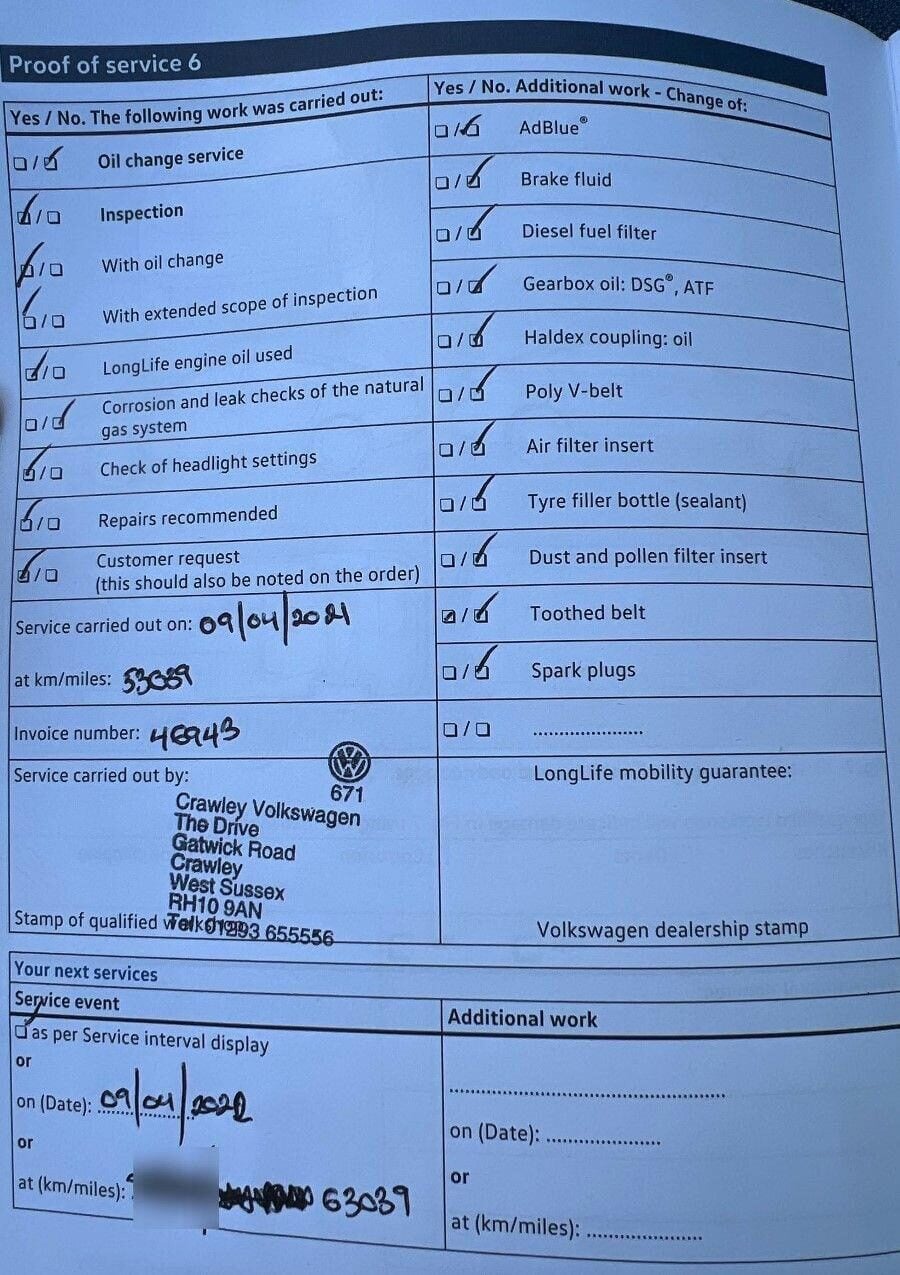 Proof of service 6
Yes / No. The following work was carried out:
Oil change service
Inspection
With oil change
With extended scope of inspection
LongLife engine oil used
Corrosion and leak checks of the natural
gas system
Check of headlight settings
Repairs recommended
Customer request
(this should also be noted on the order)
Service carried out on: 09/04/2021
at km/miles: 53039
Invoice number: 46943
Service carried out by:
671
Crawley Volkswagen
The Drive
Gatwick Road
Crawley
West Sussex
RH10 9AN
Tel: 01293 655556
Stamp of qualified workshop
Yes / No. Additional work - Change of:
AdBlue®
Brake fluid
Diesel fuel filter
Gearbox oil: DSG®, ATF
Haldex coupling: oil
Poly V-belt
Air filter insert
Tyre filler bottle (sealant)
Dust and pollen filter insert
Toothed belt
Spark plugs
LongLife mobility guarantee:
Volkswagen dealership stamp
Your next services
Service event
as per Service interval display
or
on (Date): 09/04/2022
or
at (km/miles): 63039
Additional work
on (Date):
or
at (km/miles):